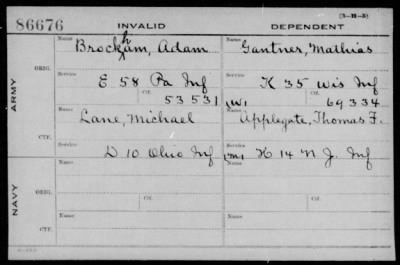 [3-II-5]
86676 INVALID DEPENDENT
Name Brockham, Adam Name Gantner, Mathias
ORIG. Service E 58 Pa Inf Service K 35 Wis Inf
Ctf. 53531 (W) Ctf. 69334
ARMY
Name Lane, Michael Name Applegate, Thomas F.
CTF. Service D 10 Ohio Inf Service (M) H 14 N J. Inf
Name Name
ORIG. Service Ctf. Service Ctf.
NAVY
Name Name
CTF.